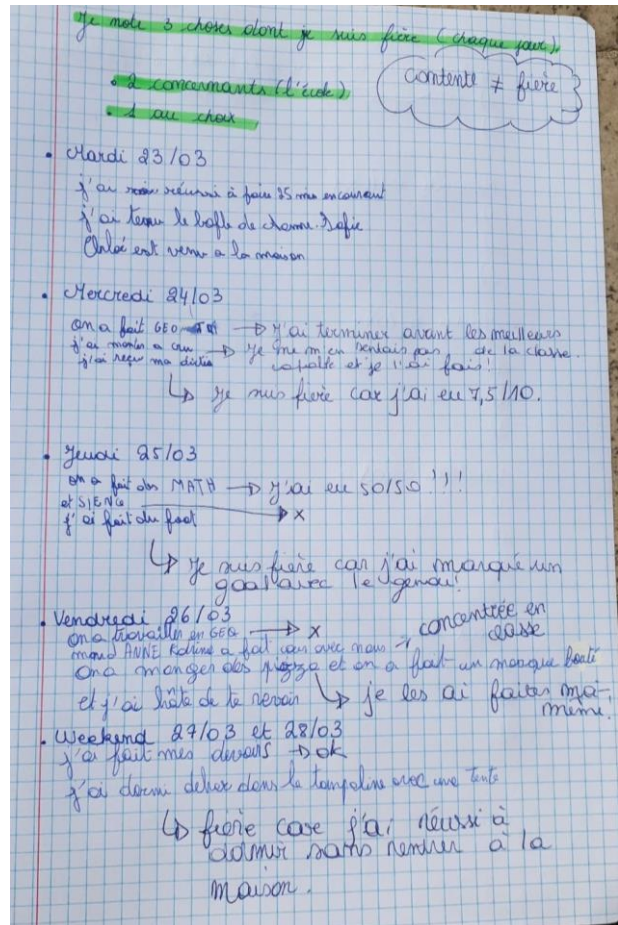 Je note 3 choses dont je suis fière (chaque jour).
• 2 concernants (l'école)
• 1 au choix
contente ≠ fière
• Mardi 23/03
j'ai réussi à faire 35 mn en courant
j'ai tenu le de
Chloé est venu a la maison
• Mercredi 24/03
on a fait GEO → J'ai terminer avant les meilleurs de la classe.
j'ai monter a cru → Je ne m'en sentais pas capable et je l'ai fais!
j'ai reçu ma dictée
↳ Je suis fière car j'ai eu 7,5/10.
• Jeudi 25/03
on a fait des MATH → J'ai eu 50/50!!!
et SIENCE → x
j'ai fait du foot
↳ Je suis fière car j'ai marqué un
goal avec le genou!
• Vendredi 26/03
on a travailler en GEO → x
ANNE a fait cour avec nous → concentrée en classe
On a manger des pizza et on a fait un masque
et j'ai hâte de te revoir ↳ je les ai faites moi-même.
• Weekend 27/03 et 28/03
j'ai fait mes devoirs → ok
j'ai dormi dehor dans le tampoline avec une tente
↳ fière care j'ai réussi à
dormir sans rentrer à la
maison.